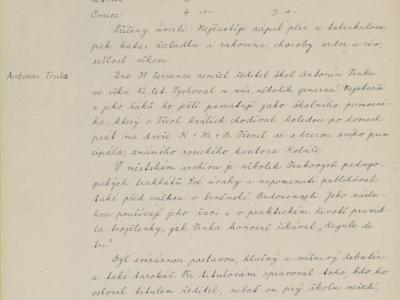 Omice 4 -"- 3 -"-
Příčiny úmrtí: Nejčastěji zápal plic a tuberkulosa,
pak katar žaludku a rakovina, choroby srdce a cév,
sešlost věkem.
Antonín Trnka
Dne 31. července zemřel ředitel škol Antonín Trnka
ve věku let. Vychoval u nás několik generací. Nejstarší
z jeho žáků ho ještě pamatují jako školního pomocní-
ka, který o Třech králích chodíval koledou po domech
psát na dveře K + M + B. Oženil se s dcerou svého prin-
cipála, známého rosického kantora Koláře.
V městském archivu je několik Trnkových pedago-
gických traktátů. Své úvahy a napomenutí publikoval
také před válkou v brněnské Budoucnosti. Jeho záslu-
hou používají jeho žáci i v praktickém životě pravid-
la trojčlenky, jak Trnka honosně říkával „Regule de
tri".
Byl svéráznou postavou, hlučný a vášnivý debatér
a také tarokář. Při titulování opravoval toho, kdo ho
oslovil titulem ředitel, neboť on prý školu neředí,